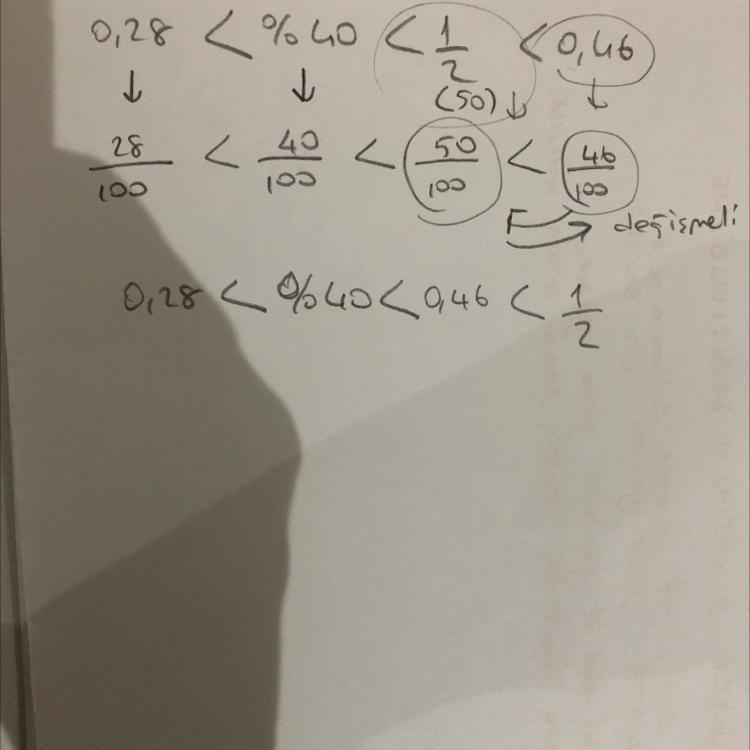 0,28 < %40 < 1/2 < 0,46
(50)
28/100 < 40/100 < 50/100 < 46/100
değişmeli
0,28 < %40 < 0,46 < 1/2